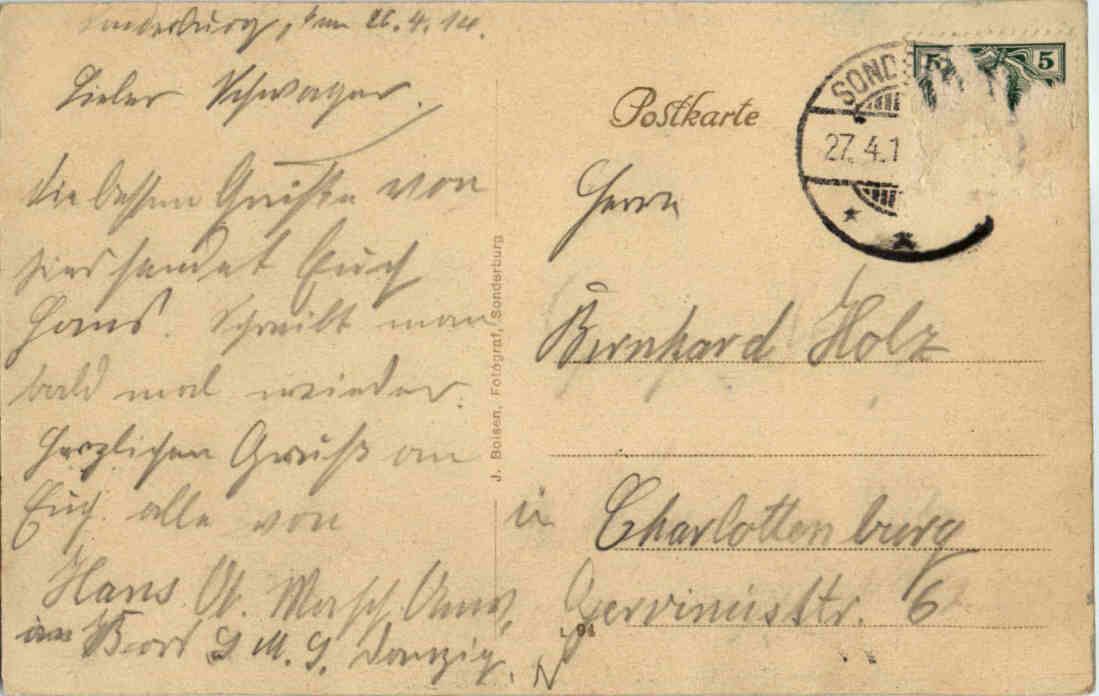 Sonderburg, den 26.4.14.
Lieber Schwager.
die besten Grüße von
hier sendet Euch
Hans. Schreibt man
bald mal wieder.
Herzlichen Gruß an
Euch alle von
Hans
an Bord S. M. S. Danzig.
J. Boisen, Fotograf, Sonderburg
Postkarte
SOND
27.4.1
5 5
Herrn
Bernhard Holz
in Charlottenburg
Gervinusstr. 6
94